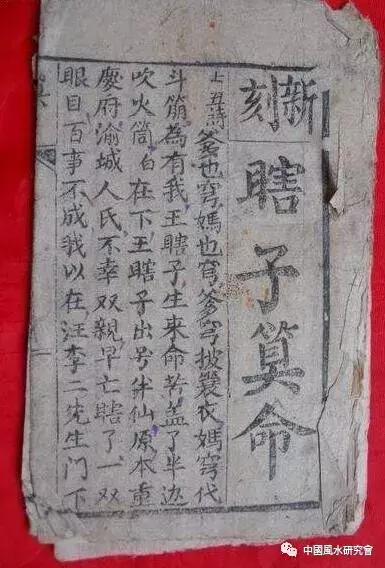 新刻
瞎子算命
上丑詩爹也穹媽也穹爹穹披蓑衣媽穹代
斗為有我王瞎子生來命苦盖了半边
吹火筒白在下王瞎子出号伴仙原本重
慶府渝城人氏不幸双親早亡瞎了一双
眼目百事不成我以在汪李二先生門下
中國風水研究會